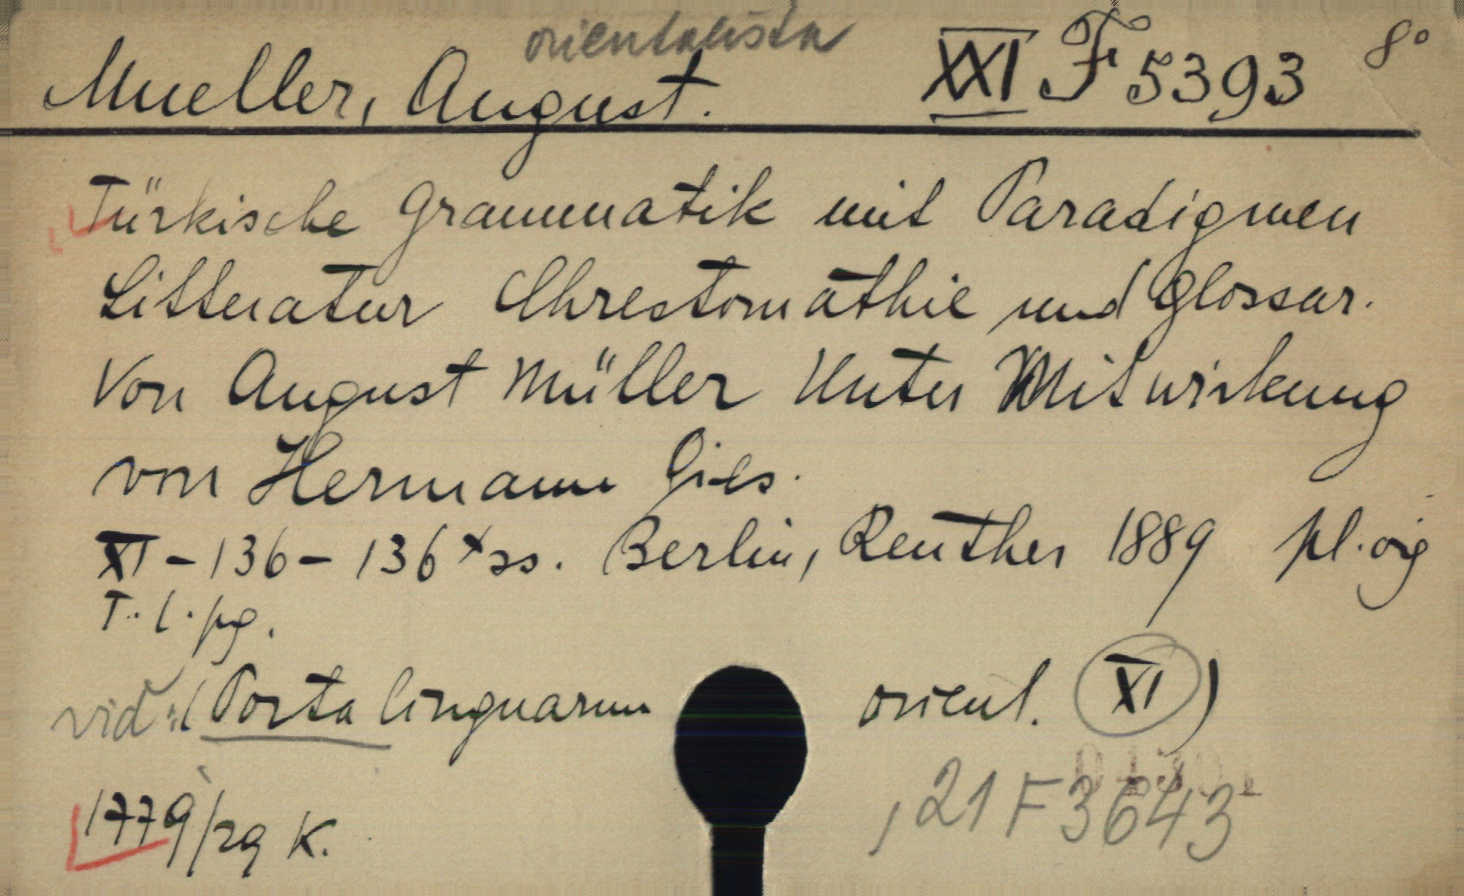 orientalista
Mueller, August. XXI F 5393 8°
Türkische Grammatik mit Paradigmen
Litteratur Chrestomathie und Glossar.
Von August Müller Unter Mitwirkung
von Hermann Gies.
XI - 136 - 136 x ss. Berlin, Reuther 1889 pl. orig
T. l. pg.
vid: (Porta linguarum orient. XI)
1779/29 K. , 21 F 3643